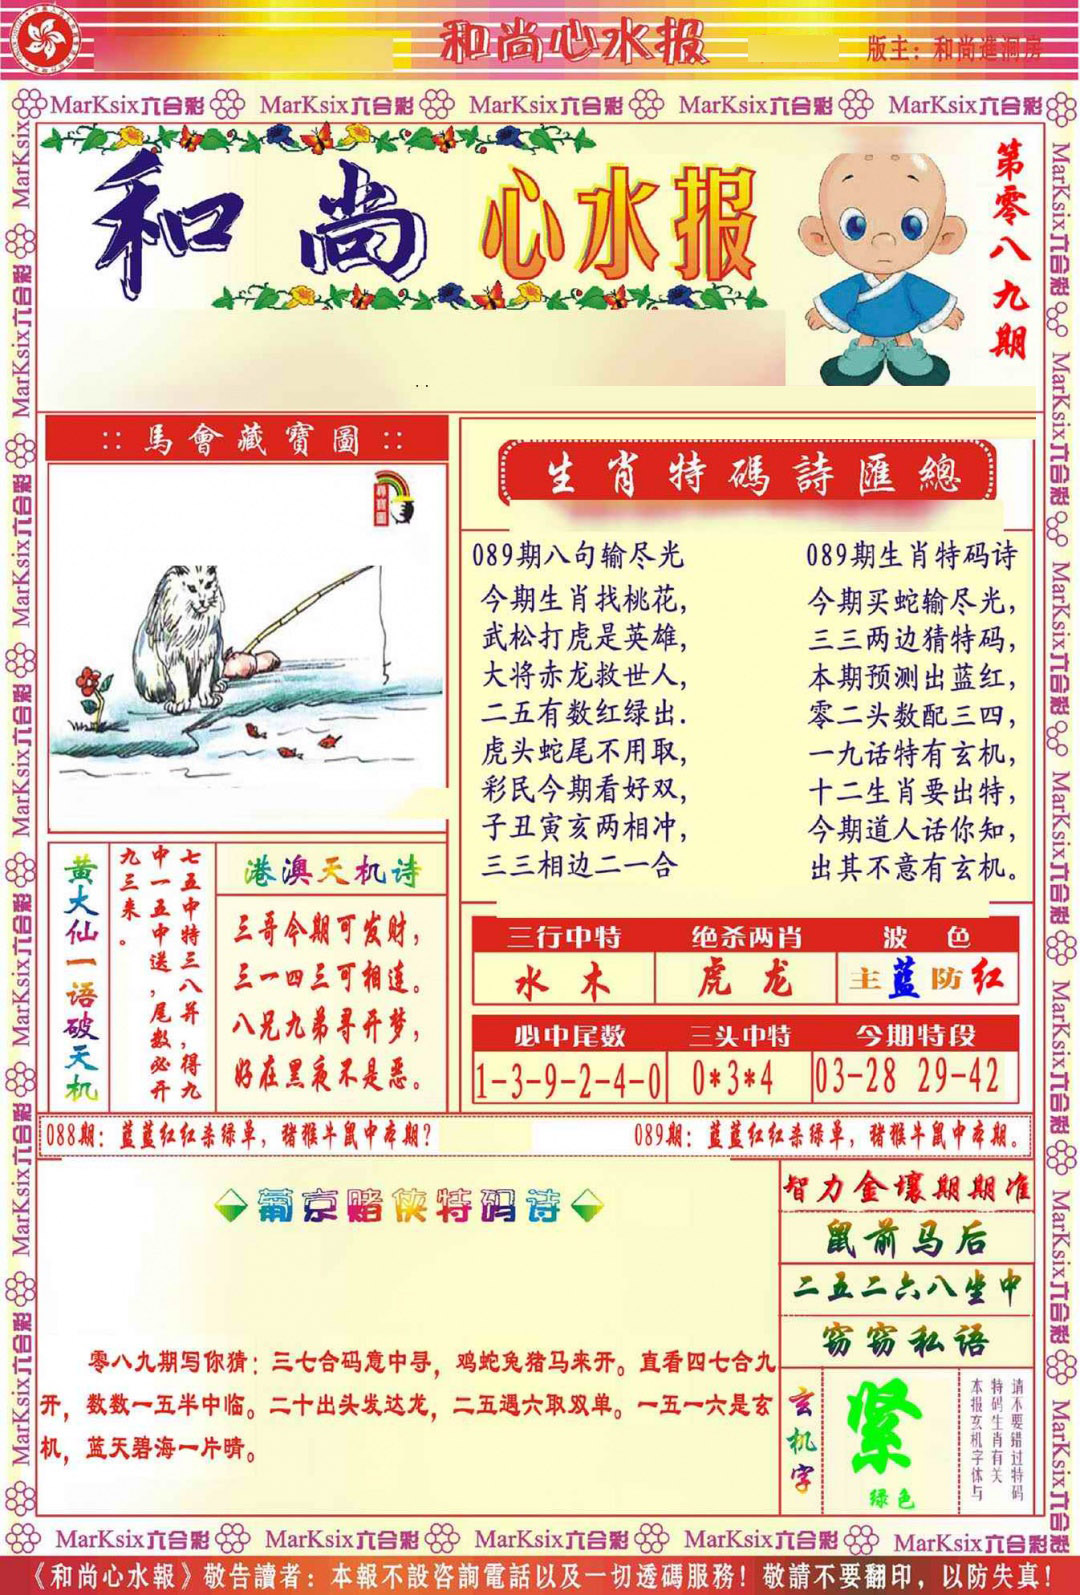 和尚心水报
版主：和尚進洞房
MarKsix六合彩 MarKsix六合彩 MarKsix六合彩 MarKsix六合彩 MarKsix六合彩
和尚心水报
第零八九期
::馬會藏寶圖::
尋寶圖
生肖特碼詩匯總
089期八句输尽光
今期生肖找桃花，
武松打虎是英雄，
大将赤龙救世人，
二五有数红绿出.
虎头蛇尾不用取，
彩民今期看好双，
子丑寅亥两相冲，
三三相边二一合
089期生肖特码诗
今期买蛇输尽光，
三三两边猜特码，
本期预测出蓝红，
零二头数配三四，
一九话特有玄机，
十二生肖要出特，
今期道人话你知，
出其不意有玄机。
黄大仙一语破天机
七五中特三八并，得九
中一五中送，尾数必开
九三来。
港澳天机诗
三哥今期可发财，
三一四三可相连。
八兄九弟寻开梦，
好在黑夜不是恶。
三行中特 绝杀两肖 波色
水木 虎龙 主蓝防红
必中尾数 三头中特 今期特段
1-3-9-2-4-0 0*3*4 03-28 29-42
088期：蓝蓝红红杀绿单，猪猴牛鼠中本期？
089期：蓝蓝红红杀绿单，猪猴牛鼠中本期。
葡京赌侠特码诗
零八九期写你猜：三七合码意中寻，鸡蛇兔猪马来开。直看四七合九
开，数数一五半中临。二十出头发达龙，二五遇六取双单。一五一六是玄
机，蓝天碧海一片晴。
智力金壤期期准
鼠前马后
二五二六八坐中
窃窃私语
玄机字
紧
绿色
请不要错过特码
特码生肖有关
本报玄机字体与
MarKsix六合彩 MarKsix六合彩 MarKsix六合彩 MarKsix六合彩 MarKsix六合彩
《和尚心水報》敬告讀者：本報不設咨詢電話以及一切透碼服務！敬請不要翻印，以防失真！